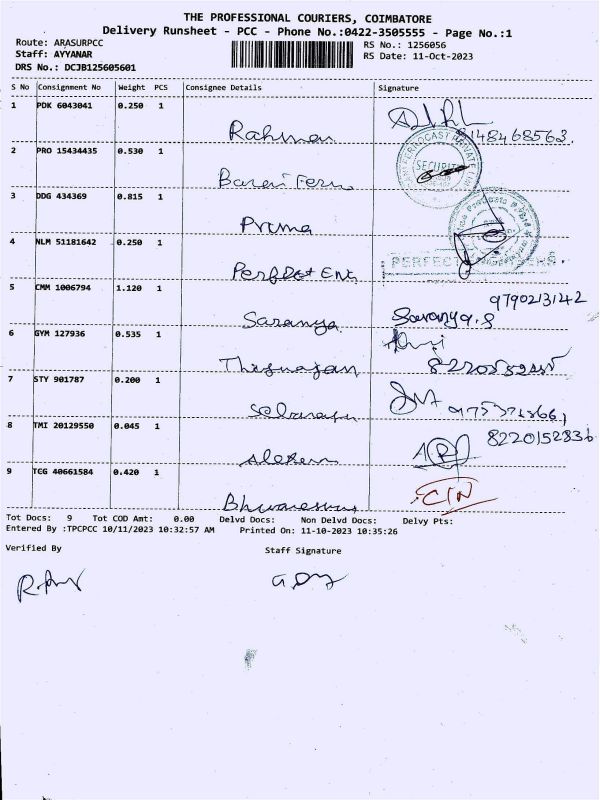 THE PROFESSIONAL COURIERS, COIMBATORE
Delivery Runsheet - PCC - Phone No.:0422-3505555 - Page No.:1
Route: ARASURPCC
Staff: AYYANAR
DRS No.: DCJB125605601
RS No.: 1256056
RS Date: 11-Oct-2023
S No Consignment No Weight PCS Consignee Details Signature
1 PDK 6043041 0.250 1
Rahman
2 PRO 15434435 0.530 1
SECURITY
3 DDG 434369 0.815 1
Prima
4 NLM 51181642 0.250 1
PERFECT
5 CMM 1006794 1.120 1 9790213142
Saranya Saranya.S
6 GYM 127936 0.535 1
7 STY 901787 0.200 1
8 TMI 20129550 0.045 1 8220152836
9 TCG 40661584 0.420 1
Tot Docs: 9 Tot COD Amt: 0.00 Delvd Docs: Non Delvd Docs: Delvy Pts:
Entered By :TPCPCC 10/11/2023 10:32:57 AM Printed On: 11-10-2023 10:35:26
Verified By Staff Signature